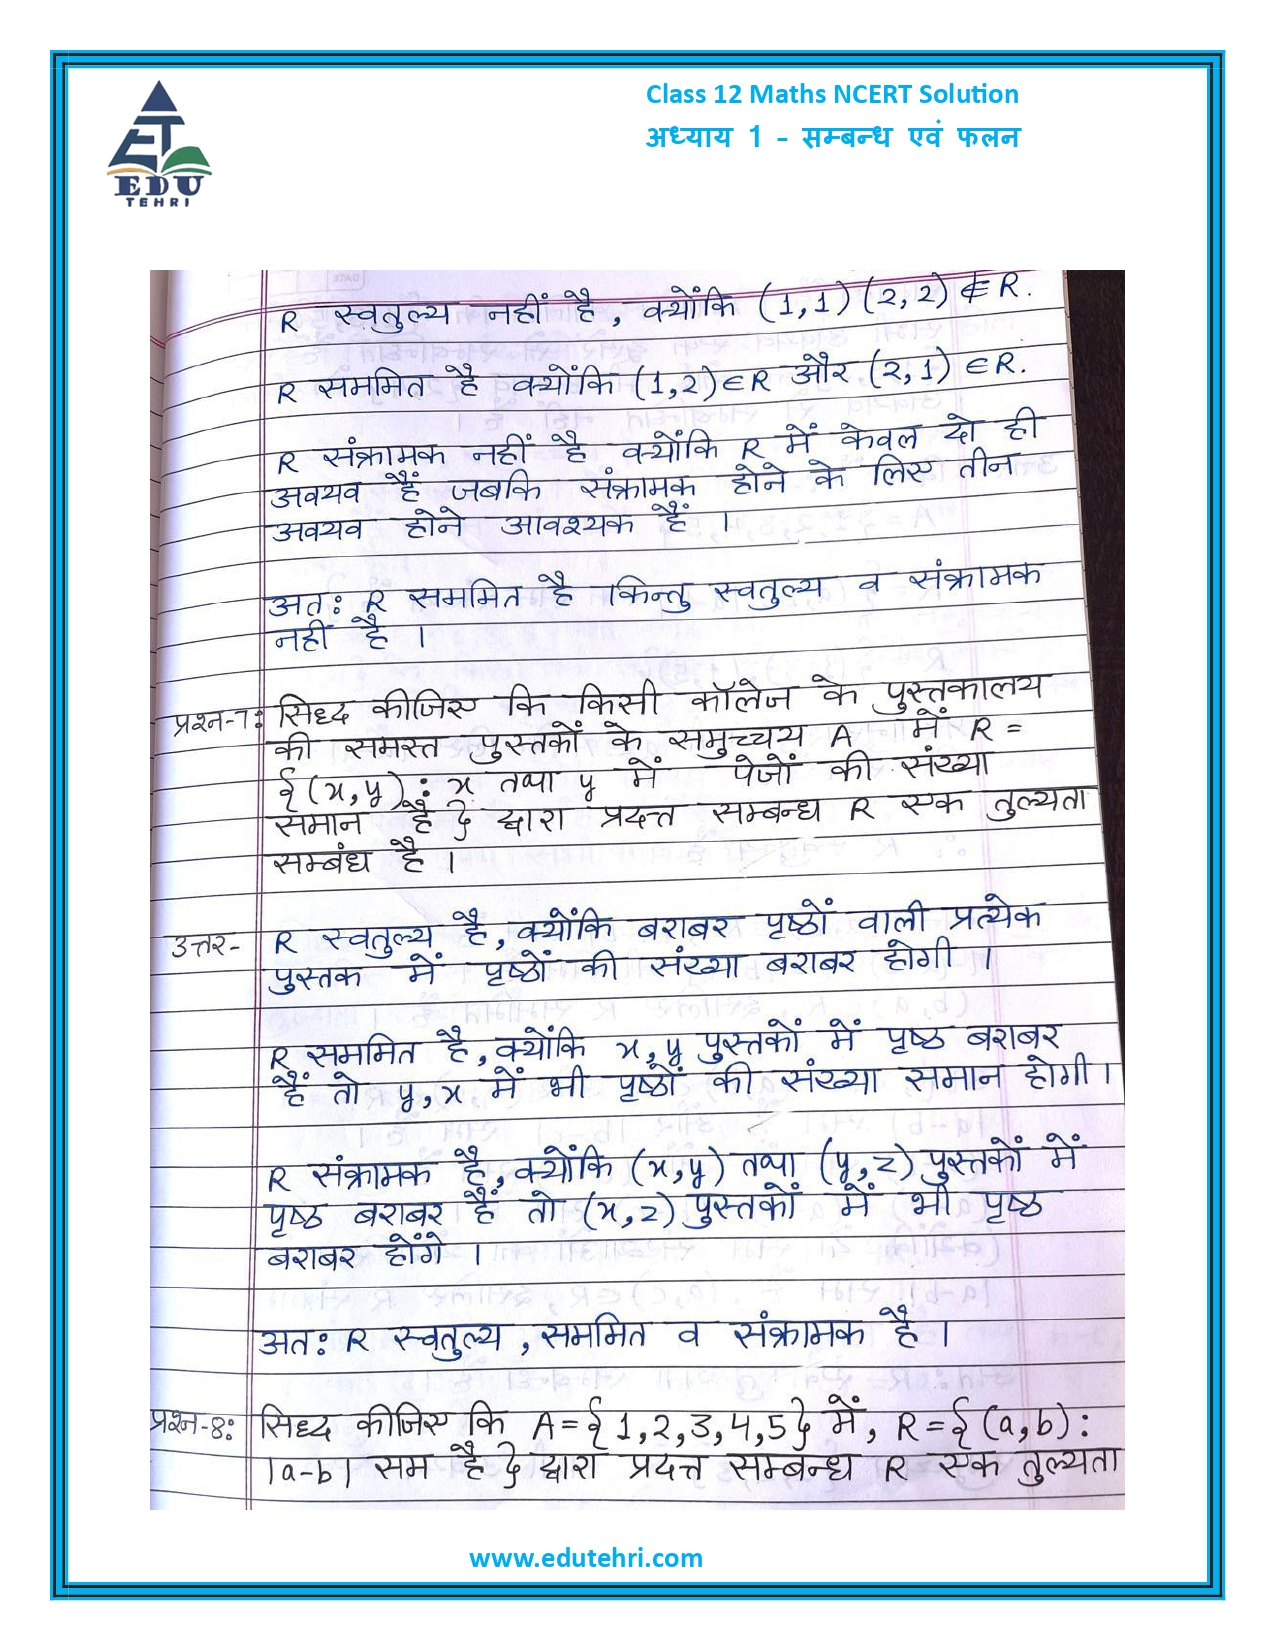 Class 12 Maths NCERT Solution
अध्याय 1 - सम्बन्ध एवं फलन
ET
EDU
TEHRI
R स्वतुल्य नहीं है, क्योंकि (1,1) (2,2) ∉ R.
R सममित है क्योंकि (1,2) ∈ R और (2,1) ∈ R.
R संक्रामक नहीं है क्योंकि R में केवल दो ही
अवयव हैं जबकि संक्रामक होने के लिए तीन
अवयव होने आवश्यक हैं ।
अतः R सममित है किन्तु स्वतुल्य व संक्रामक
नहीं है ।
प्रश्न-7: सिध्द कीजिए कि किसी कॉलेज के पुस्तकालय
की समस्त पुस्तकों के समुच्चय A में R =
{(x,y) : x तथा y में पेजों की संख्या
समान है} द्वारा प्रदत्त सम्बन्ध R एक तुल्यता
सम्बंध है ।
उत्तर- R स्वतुल्य है, क्योंकि बराबर पृष्ठों वाली प्रत्येक
पुस्तक में पृष्ठों की संख्या बराबर होगी ।
R सममित है, क्योंकि x,y पुस्तकों में पृष्ठ बराबर
हैं तो y,x में भी पृष्ठों की संख्या समान होगी ।
R संक्रामक है, क्योंकि (x,y) तथा (y,z) पुस्तकों में
पृष्ठ बराबर हैं तो (x,z) पुस्तकों में भी पृष्ठ
बराबर होंगे ।
अतः R स्वतुल्य, सममित व संक्रामक है ।
प्रश्न-8: सिध्द कीजिए कि A={1,2,3,4,5} में, R={(a,b):
|a-b| सम है} द्वारा प्रदत्त सम्बन्ध R एक तुल्यता
www.edutehri.com